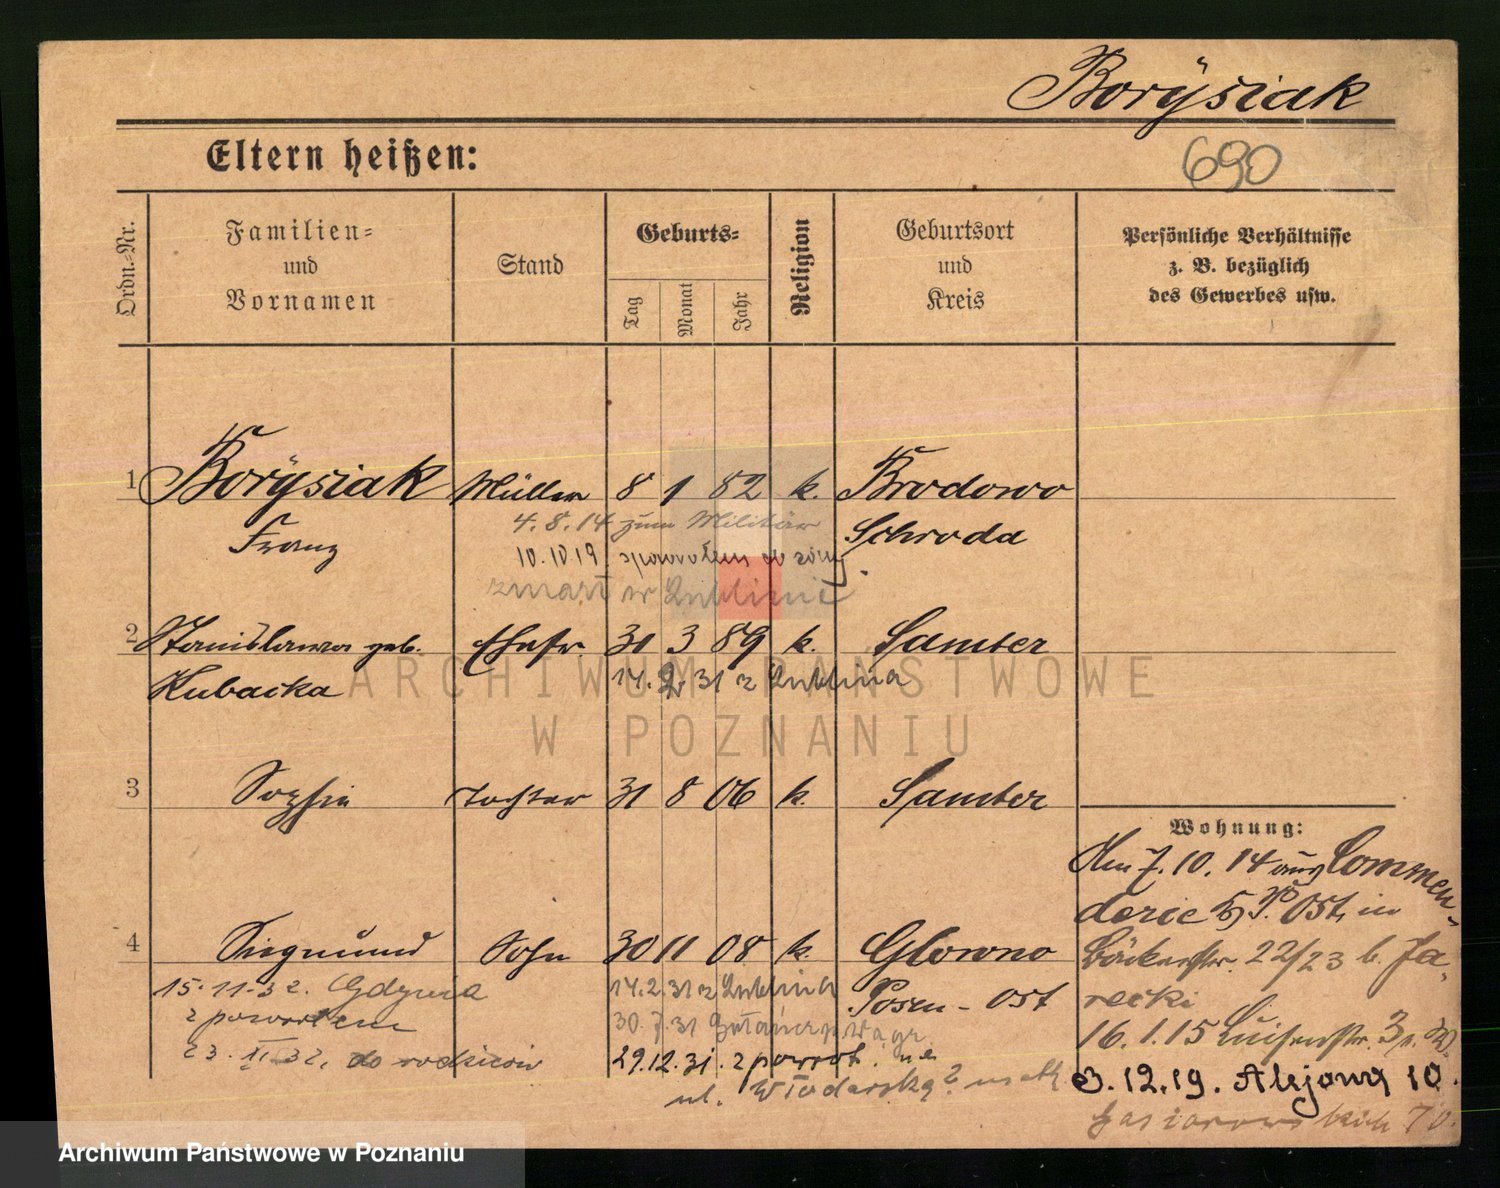 Borÿsiak
690
Eltern heißen:
Ordn.-Nr.
Familien-
und
Vornamen
Stand
Geburts-
Tag
Monat
Jahr
Religion
Geburtsort
und
Kreis
Persönliche Verhältnisse
z. B. bezüglich
des Gewerbes usw.
1 Borÿsiak Müller 8 1 82 k. Brodowo
Franz Schroda
4.8.14 zum Militär
10.10 19. spowrotem do
zmarł w Lublinie
2 Stanislawa geb. Ehefr. 30 3 89 k. Samter
Kubacka
14. 2 31 z Lublina
3 Sophie Tochter 31 8 06 k. Samter
4 Siegmund Sohn 30 11 08 k. Glowno
Posen-Ost
15.11.32. Gdynia
z powrotem
23. II 32. do rodziców
14.2.31 z Lublina
30.7.31
29.12.31. z powrot.
ul.
Wohnung:
Am 7.10.14 aus Commen-
derie 5, P. Ost, in
Bäckerstr. 22/23 b. Ja-
recki
16.1.15 Luisenstr. 3
3.12.19. Alejowa 10.
Gąsiorowskich 70.
ARCHIWUM PAŃSTWOWE
W POZNANIU
Archiwum Państwowe w Poznaniu